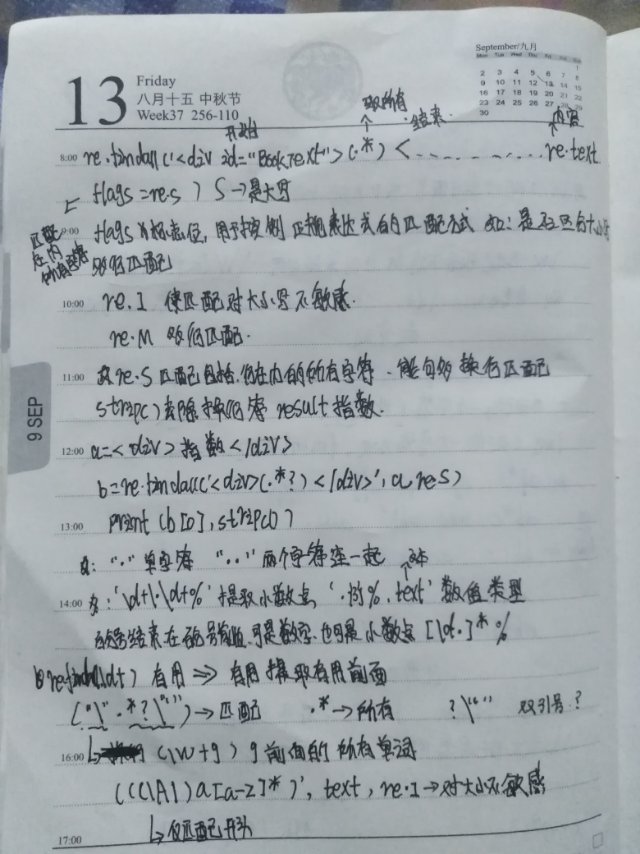 September/九月
Mon Tue Wed Thu Fri Sat Sun
1
2 3 4 5 6 7 8
9 10 11 12 13 14 15
16 17 18 19 20 21 22
23 24 25 26 27 28 29
30
13
Friday
八月十五 中秋节
Week37 256-110
取所有
结果
内容
8:00 re.findall('<div id="Bookrext">(.*)< ......... re.text
flags = re.s ) S→是大写
匹配
9:00 flags 为标志位, 用于控制正规表达式的匹配方式 如: 是否区分大小写
多行匹配
10:00 re.I 使匹配对大小写不敏感.
re.M 多行匹配.
11:00 re.S 匹配包括.行在内的所有字符. 能够多换行匹配
9 SEP
stripc) 去除换行符 result 指数.
12:00 a=<div>指数</div>
b=re.findall('<div>(.*?)</div>', a, re.S)
13:00 print (b[0].strip())
"." 单字符 ".." 两个字符在一起
文本
14:00 '\d+\.\d+%' 提取小数点 '.的%. text' 数值类型
百分号结束 在百分号前面.可是数字.也可是小数点 [\d.]*%
re.findall(\d+) 有用 => 有用 提取有用前面
→匹配 .*→所有 双引号?
16:00 (\w+g) g前面的所有单词
a[a-z]*)', text, re.I→对大小不敏感
仅匹配开头
17:00